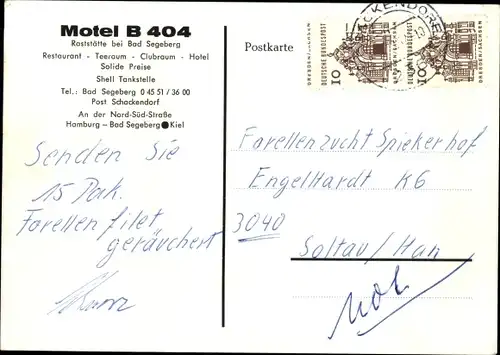 Motel B 404
Raststätte bei Bad Segeberg
Restaurant - Teeraum - Clubraum - Hotel
Solide Preise
Shell Tankstelle
Tel.: Bad Segeberg 0 45 51 / 36 00
Post Schackendorf
An der Nord-Süd-Straße
Hamburg – Bad Segeberg Kiel
Senden Sie
15 Pak.
Forellen filet
geräuchert
Postkarte
DRESDEN/SACHSEN
DEUTSCHE BUNDESPOST
10
DRESDEN/SACHSEN
DEUTSCHE BUNDESPOST
10
Forellenzucht Spiekerhof
Engelhardt KG
3040
Soltau/Han